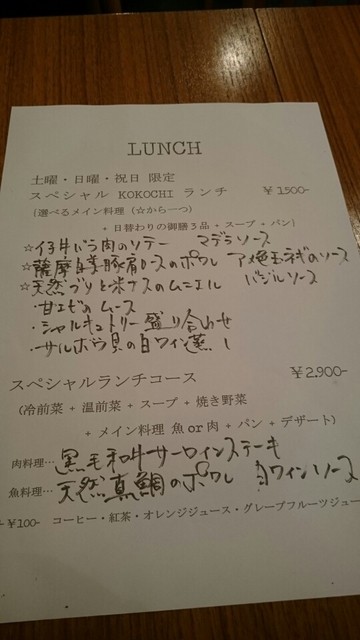 LUNCH
土曜・日曜・祝日 限定
スペシャル KOKOCHI ランチ ￥1500-
(選べるメイン料理 (☆から一つ)
+ 日替わりの御膳3品 + スープ + パン)
☆仔牛バラ肉のソテー マデラソース
☆薩摩 豚肩ロースのポワレ アメ色玉ネギのソース
☆天然ブリと米ナスのムニエル バジルソース
・甘エビのムース
・シャルキュトリー盛り合わせ
・サルボウ貝の白ワイン蒸し
スペシャルランチコース ￥2,900-
(冷前菜 + 温前菜 + スープ + 焼き野菜
+ メイン料理 魚 or 肉 + パン + デザート)
肉料理…黒毛和牛サーロインステーキ
魚料理…天然真鯛のポワレ 白ワインソース
￥100- コーヒー・紅茶・オレンジジュース・グレープフルーツジュー